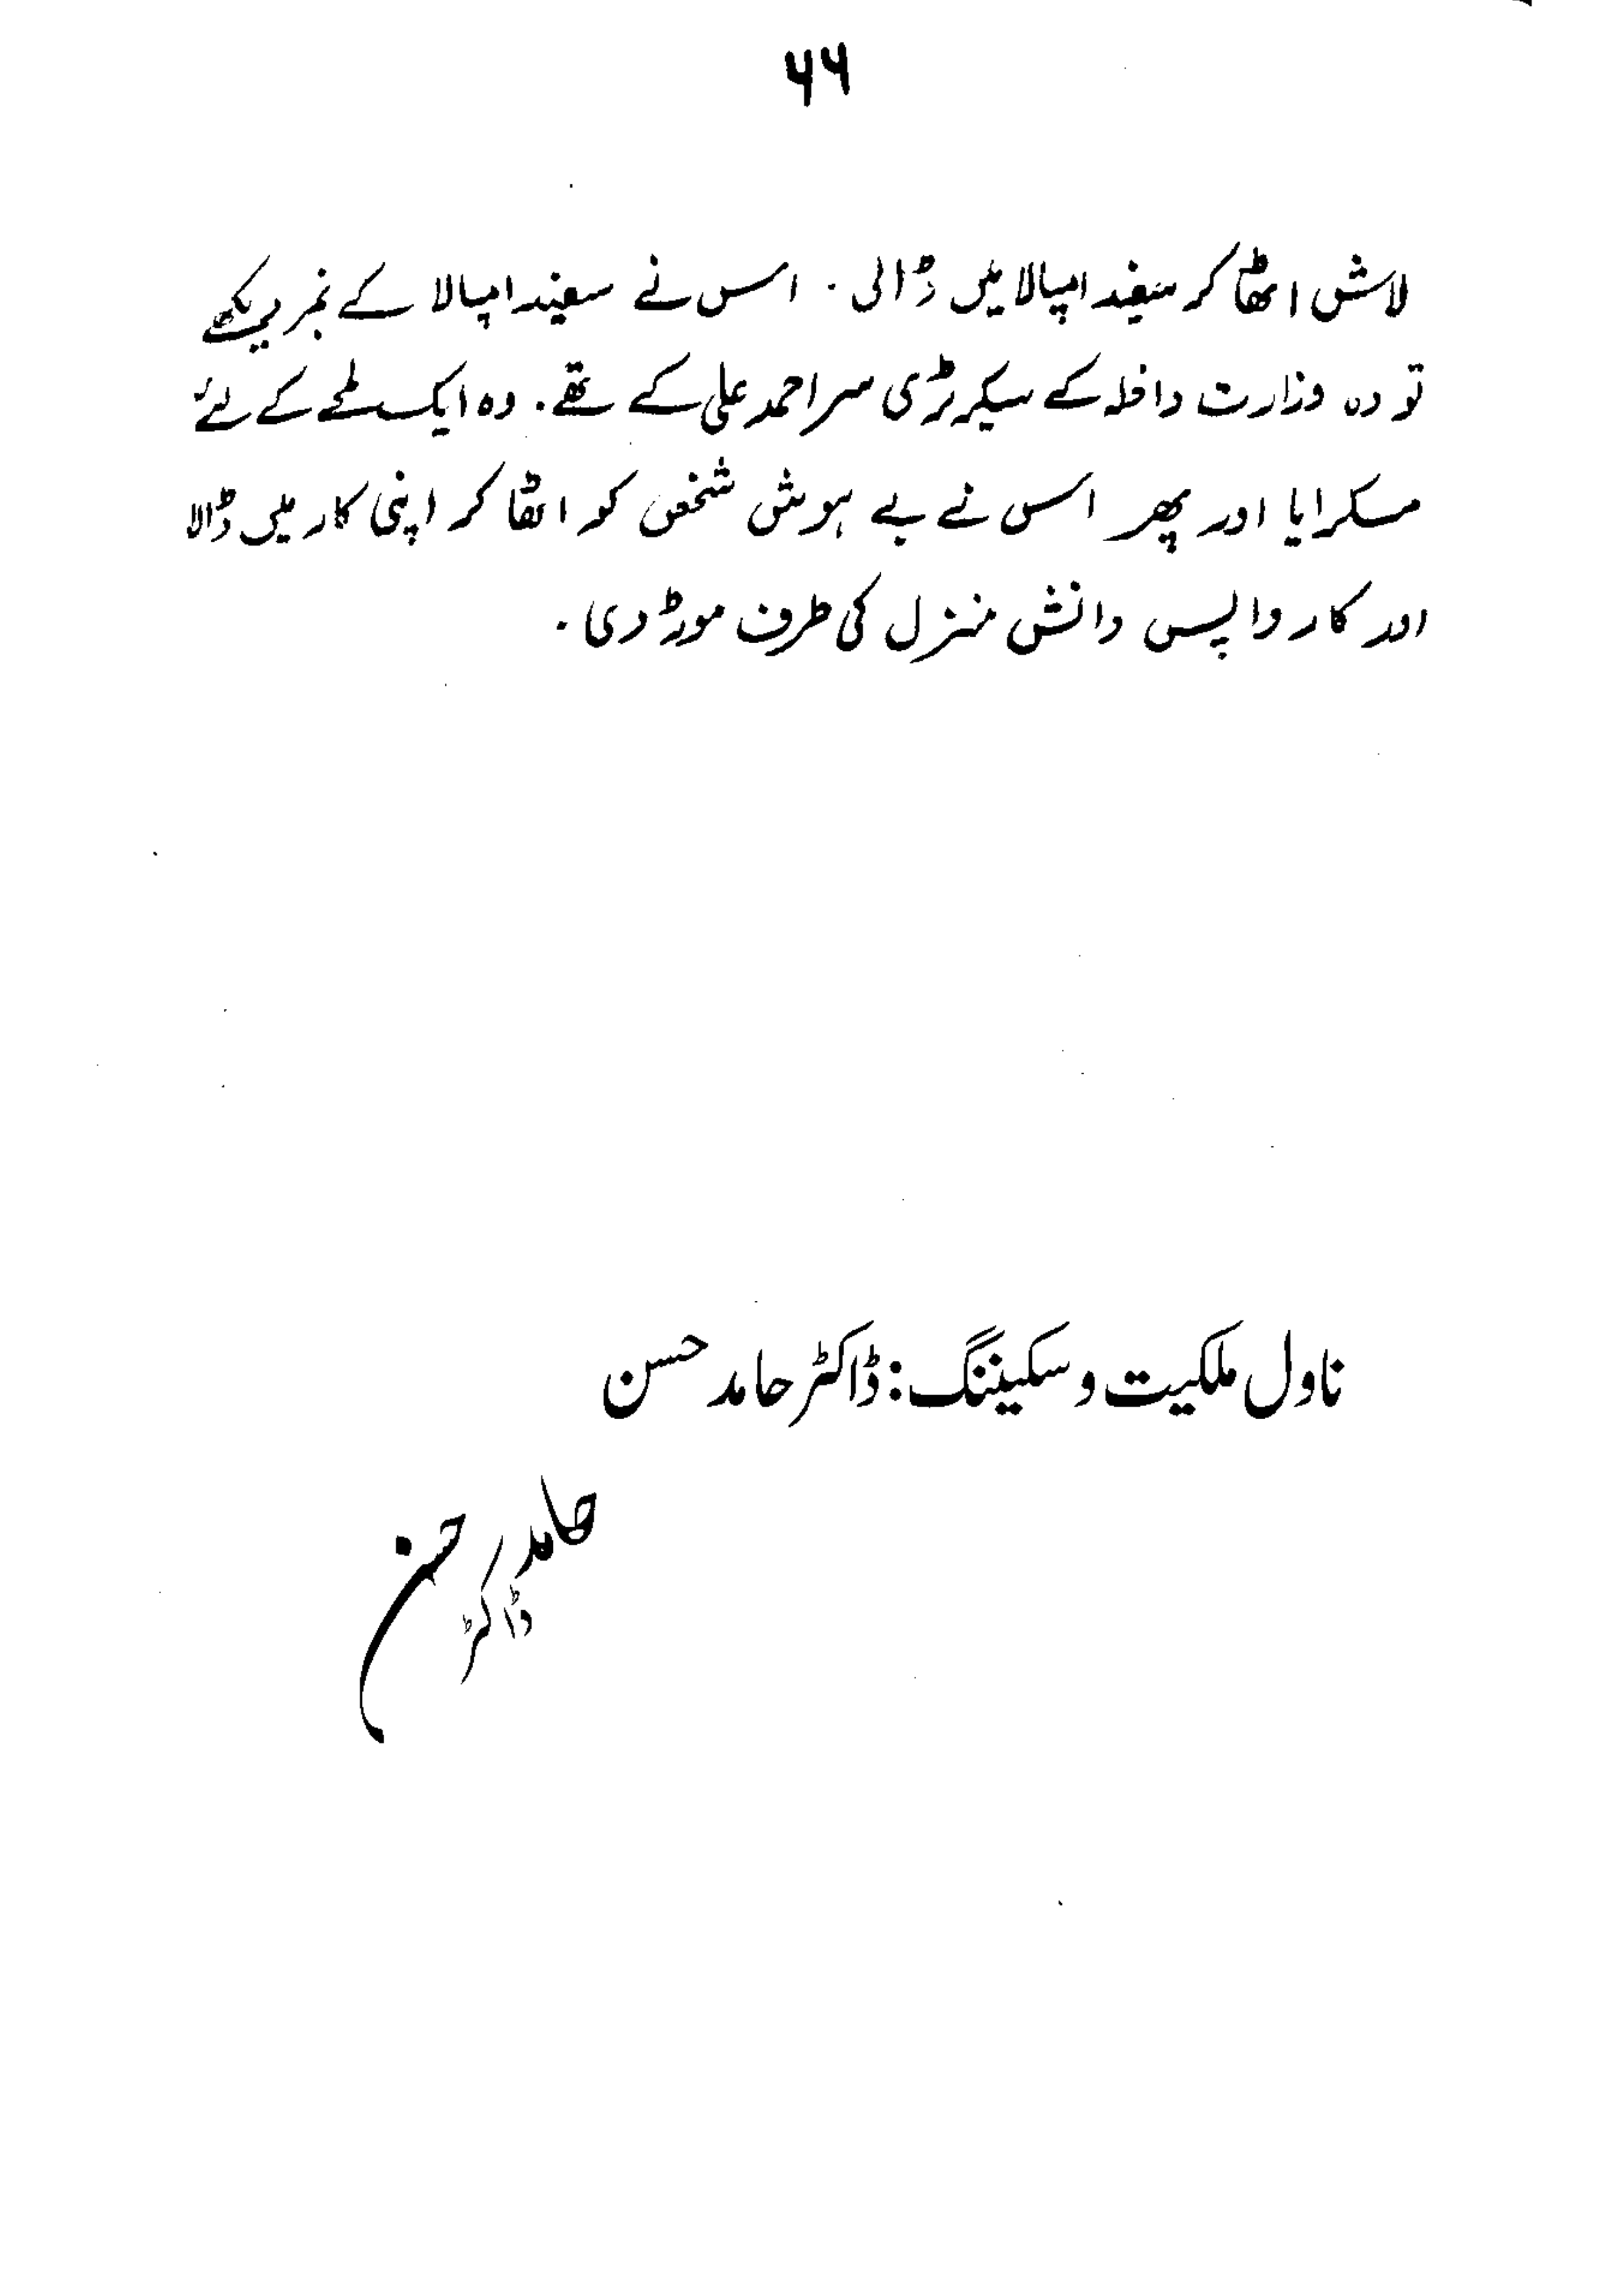 ۶۶
لاش اٹھا کر سفید امپالا میں ڈالی۔ اس نے سفید امپالا کے نمبر دیکھے
تو وہ وزارت داخلہ کے سیکرٹری سر احمد علی کے تھے۔ وہ ایک لمحے کے لئے
مسکرایا اور پھر اس نے بے ہوش شخص کو اٹھا کر اپنی کار میں ڈالا
اور کار واپس دانش منزل کی طرف موڑ دی۔
ناول ملکیت و سکیننگ : ڈاکٹر حامد حسن
حامد حسن
ڈاکٹر